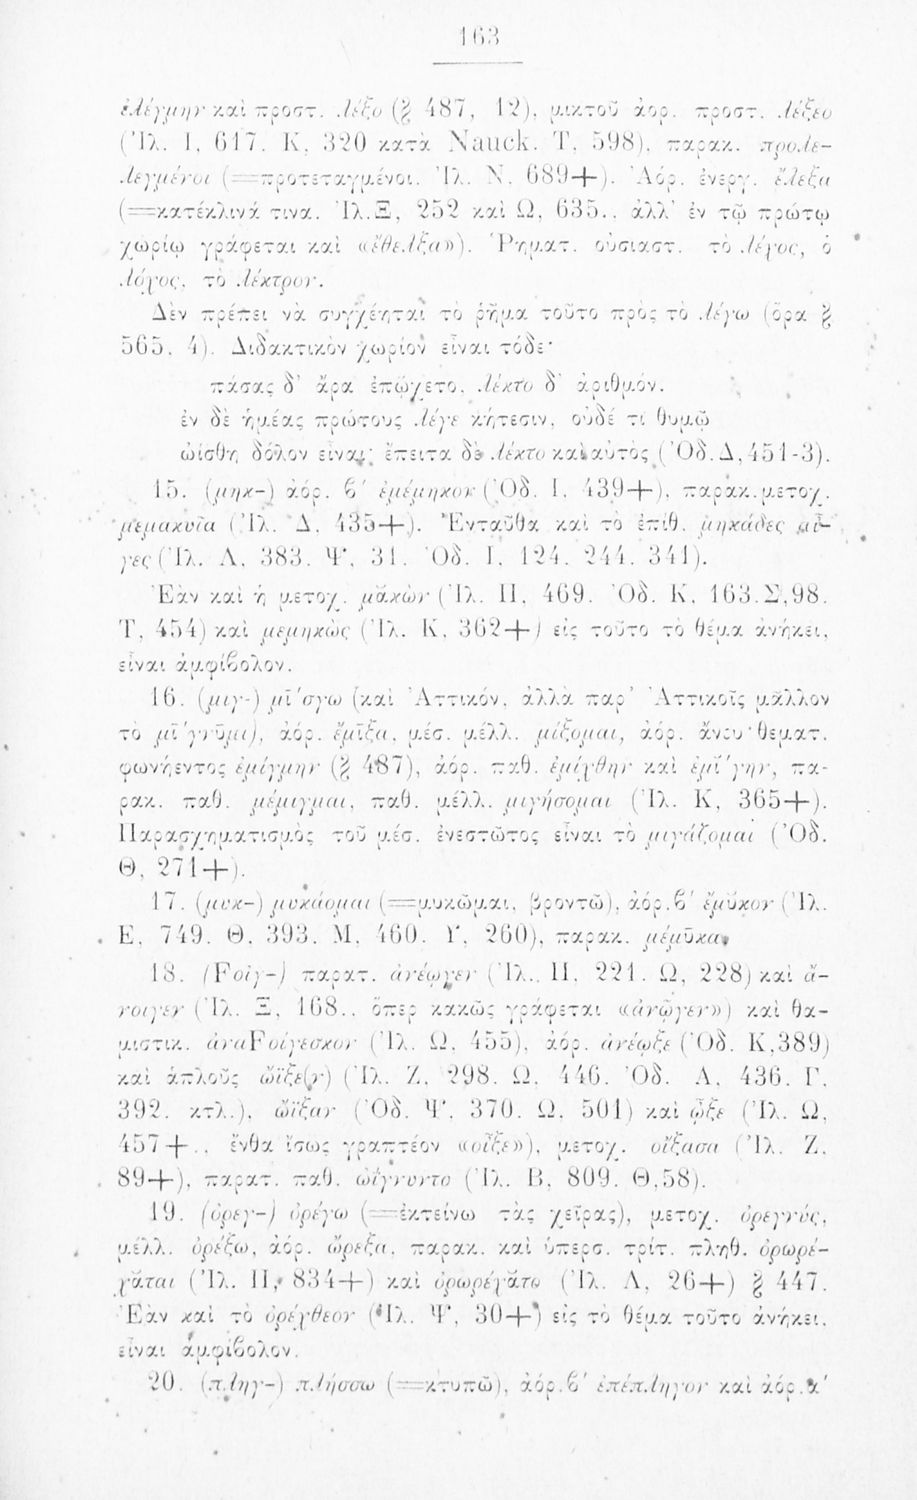 163
ἐλέγμην καὶ προστ. λέξο (§ 487, 12), μικτοῦ ἀορ. προστ. λέξεο
(Ἰλ. Ι, 617. Κ, 320 κατὰ Nauck. Τ, 598), παρακ. προλε-
λεγμένοι (=προτεταγμένοι. Ἰλ. Ν, 689+). Ἀόρ. ἐνεργ. ἔλεξα
(=κατέκλινά τινα. Ἰλ.Ξ, 252 καὶ Ω, 635.. ἀλλ' ἐν τῷ πρώτῳ
χωρίῳ γράφεται καὶ «ἔθελξα»). Ῥηματ. οὐσιαστ. τὸ λέχος, ὁ
λόχος, τὸ λέκτρον.
Δὲν πρέπει νὰ συγχέηται τὸ ῥῆμα τοῦτο πρὸς τὸ λέγω (ὅρα §
565, 4). Διδακτικὸν χωρίον εἶναι τόδε·
πάσας δ' ἄρα ἐπῴχετο, λέκτο δ' ἀριθμόν.
ἐν δὲ ἡμέας πρώτους λέγε κήτεσιν, οὐδέ τι θυμῷ
ὠίσθη δόλον εἶναι· ἔπειτα δὲ λέκτο καὶ αὐτὸς (Ὀδ.Δ,451-3).
15. (μηκ-) ἀόρ. β' ἐμέμηκον (Ὀδ. Ι, 439+), παρακ.μετοχ.
μεμακυῖα (Ἰλ. Δ, 435+). Ἐνταῦθα καὶ τὸ ἐπίθ. μηκάδες αἶ-
γες (Ἰλ. Λ, 383. Ψ, 31. Ὀδ. Ι, 124. 244. 341).
Ἐὰν καὶ ἡ μετοχ. μᾰκὼν (Ἰλ. Π, 469. Ὀδ. Κ, 163.Σ,98.
Τ, 454) καὶ μεμηκὼς (Ἰλ. Κ, 362+) εἰς τοῦτο τὸ θέμα ἀνήκει,
εἶναι ἀμφίβολον.
16. (μιγ-) μῑ'σγω (καὶ Ἀττικόν, ἀλλὰ παρ' Ἀττικοῖς μᾶλλον
τὸ μῑ'γνῡμι), ἀόρ. ἔμῑξα, μέσ. μέλλ. μίξομαι, ἀόρ. ἄνευ θεματ.
φωνήεντος ἐμίγμην (§ 487), ἀόρ. παθ. ἐμίχθην καὶ ἐμῐ'γην, πα-
ρακ. παθ. μέμιγμαι, παθ. μέλλ. μιγήσομαι (Ἰλ. Κ, 365+).
Παρασχηματισμὸς τοῦ μέσ. ἐνεστῶτος εἶναι τὸ μιγάζομαι (Ὀδ.
Θ, 271+).
17. (μυκ-) μυκάομαι (=μυκῶμαι, βροντῶ), ἀόρ.β' ἔμῠκον (Ἰλ.
Ε, 749. Θ, 393. Μ, 460. Υ, 260), παρακ. μέμῡκα.
18. (Fοίγ-) παρατ. ἀνέῳγεν (Ἰλ. Π, 221. Ω, 228) καὶ ἄ-
νοιγεν (Ἰλ. Ξ, 168.. ὅπερ κακῶς γράφεται «ἀνῷγεν») καὶ θα-
μιστικ. ἀναFοίγεσκον (Ἰλ. Ω, 455), ἀόρ. ἀνέῳξε (Ὀδ. Κ,389)
καὶ ἁπλοῦς ὤϊξε(ν) (Ἰλ. Ζ, 298. Ω, 446. Ὀδ. Α, 436. Γ,
392. κτλ.), ὤϊξαν (Ὀδ. Ψ, 370. Ω, 501) καὶ ᾦξε (Ἰλ. Ω,
457+.. ἔνθα ἴσως γραπτέον «οἶξε»), μετοχ. οἴξασα (Ἰλ. Ζ,
89+), παρατ. παθ. ὠίγνυντο (Ἰλ. Β, 809. Θ,58).
19. (ὀρεγ-) ὀρέγω (=ἐκτείνω τὰς χεῖρας), μετοχ. ὀρεγνύς,
μέλλ. ὀρέξω, ἀόρ. ὤρεξα, παρακ. καὶ ὑπερσ. τρίτ. πληθ. ὀρωρέ-
χᾰται (Ἰλ. Π, 834+) καὶ ὀρωρέχᾰτο (Ἰλ. Λ, 26+) § 447.
Ἐὰν καὶ τὸ ὀρέχθεον (Ἰλ. Ψ, 30+) εἰς τὸ θέμα τοῦτο ἀνήκει,
εἶναι ἀμφίβολον.
20. (πληγ-) πλήσσω (=κτυπῶ), ἀόρ.β' ἐπέπληγον καὶ ἀόρ.α'